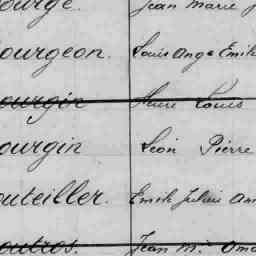 ourge. Jean Marie J
ourgeon. Louis Ange Emile
ourgin Louis
ourgin Léon Pierre
outeiller. Emile Julien Am
outros. Jean M. Ama